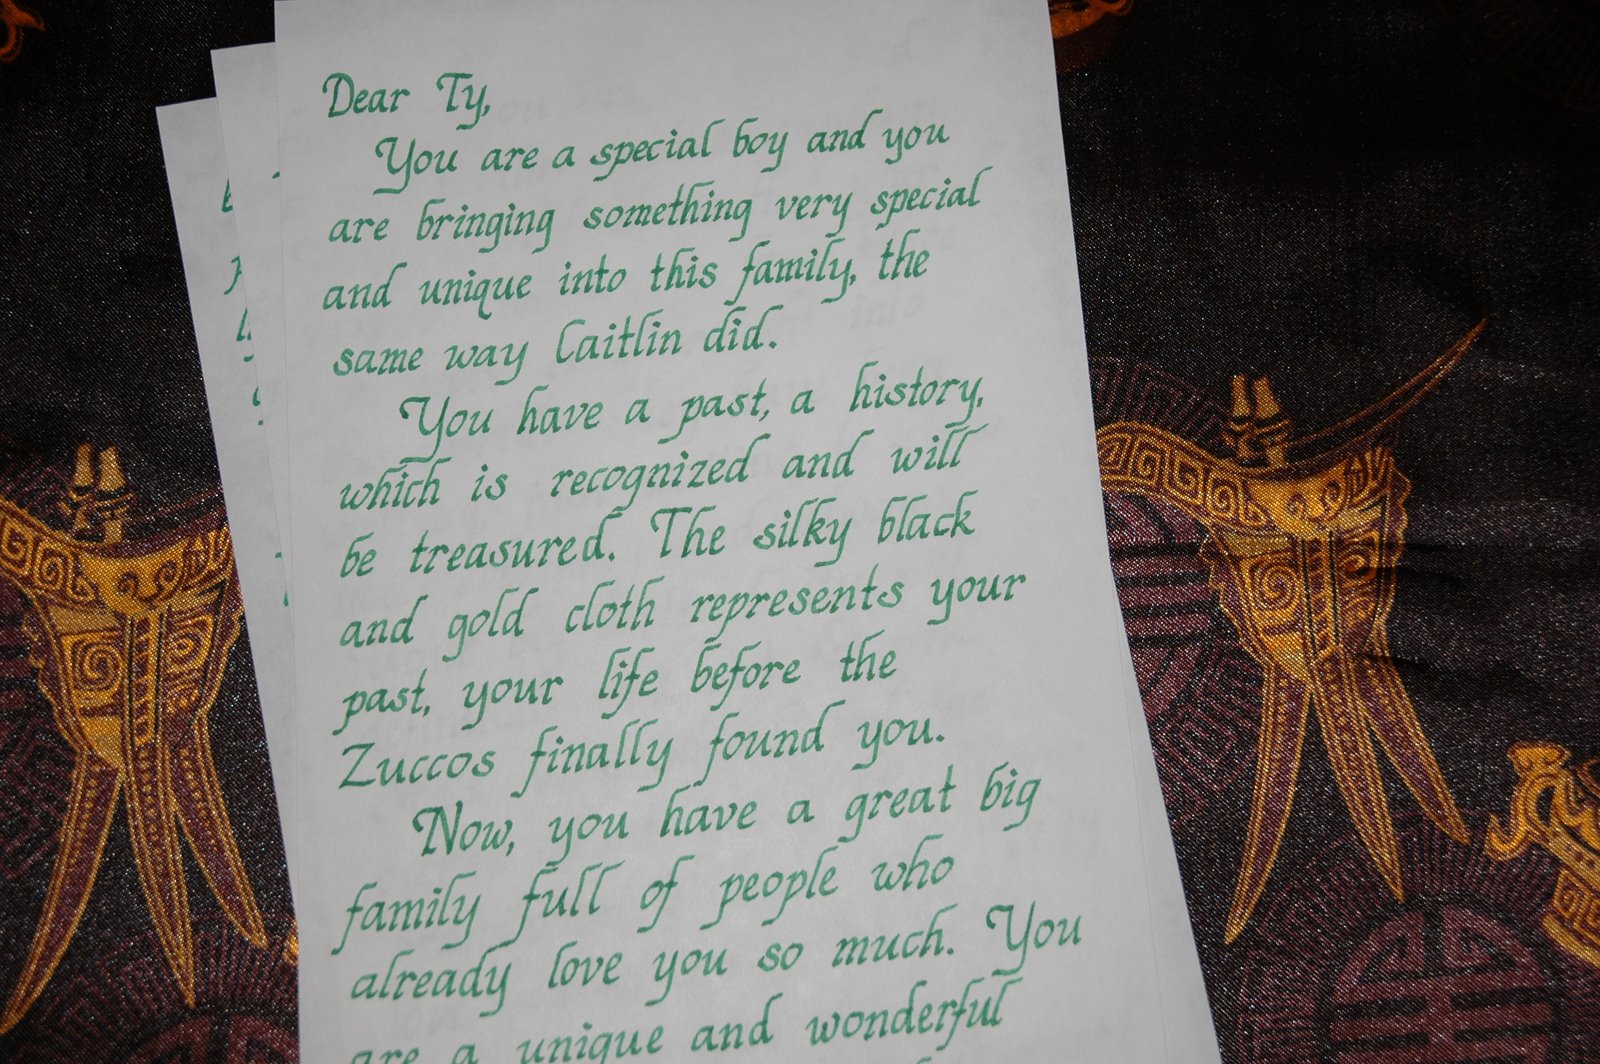 Dear Ty,
You are a special boy and you
are bringing something very special
and unique into this family, the
same way Caitlin did.
You have a past, a history,
which is recognized and will
be treasured. The silky black
and gold cloth represents your
past, your life before the
Zuccos finally found you.
Now, you have a great big
family full of people who
already love you so much. You
are a unique and wonderful